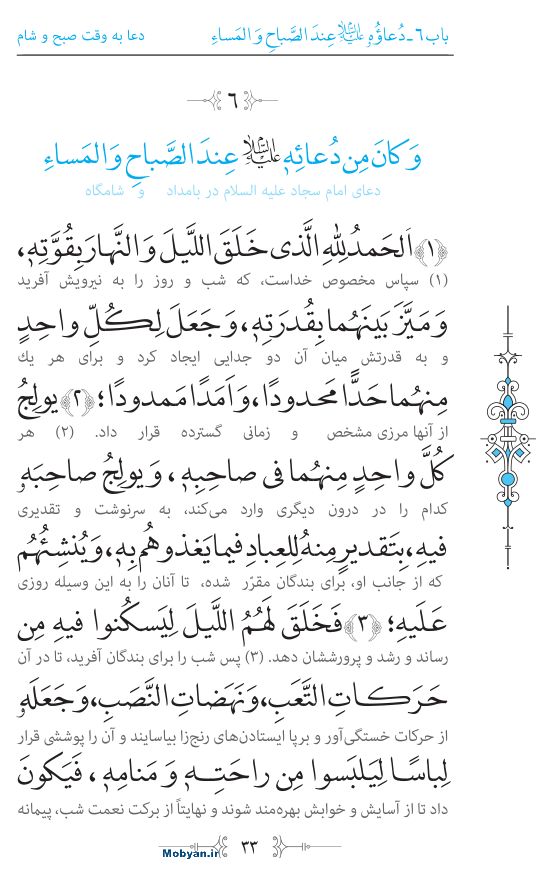 باب ۶ - دُعاؤُهُ عليه‌السلام عِندَ الصَّباحِ وَ المَساءِ
دعا به وقت صبح و شام
۶
وَ كانَ مِن دُعائِهِ عليه‌السلام عِندَ الصَّباحِ وَ المَساءِ
دعای امام سجاد علیه السلام در بامداد و شامگاه
﴿۱﴾ اَلحَمدُ لِلّٰهِ الَّذى خَلَقَ اللَّيلَ وَ النَّهارَ بِقُوَّتِهِ،
(۱) سپاس مخصوص خداست، که شب و روز را به نیرویش آفرید
وَ مَيَّزَ بَينَهُما بِقُدرَتِهِ، وَ جَعَلَ لِكُلِّ واحِدٍ
و به قدرتش میان آن دو جدایی ایجاد کرد و برای هر یك
مِنهُما حَدًّا مَحدودًا، وَ اَمَدًا مَمدودًا؛ ﴿۲﴾ يولِجُ
از آنها مرزی مشخص و زمانی گسترده قرار داد. (۲) هر
كُلَّ واحِدٍ مِنهُما فى صاحِبِهِ، وَ يولِجُ صاحِبَهُ
کدام را در درون دیگری وارد می‌کند، به سرنوشت و تقدیری
فيهِ، بِتَقديرٍ مِنهُ لِلعِبادِ فيما يَغذوهُم بِهِ، وَ يُنشِئُهُم
که از جانب او، برای بندگان مقرّر شده، تا آنان را به این وسیله روزی
عَلَيهِ؛ ﴿۳﴾ فَخَلَقَ لَهُمُ اللَّيلَ لِيَسكُنوا فيهِ مِن
رساند و رشد و پرورششان دهد. (۳) پس شب را برای بندگان آفرید، تا در آن
حَرَكاتِ التَّعَبِ، وَ نَهَضاتِ النَّصَبِ، وَ جَعَلَهُ
از حرکات خستگی‌آور و برپا ایستادن‌های رنج‌زا بیاسایند و آن را پوششی قرار
لِباسًا لِيَلبَسوا مِن راحَتِهِ وَ مَنامِهِ، فَيَكونَ
داد تا از آسایش و خوابش بهره‌مند شوند و نهایتاً از برکت نعمت شب، پیمانه
۳۳
Mobyan.ir